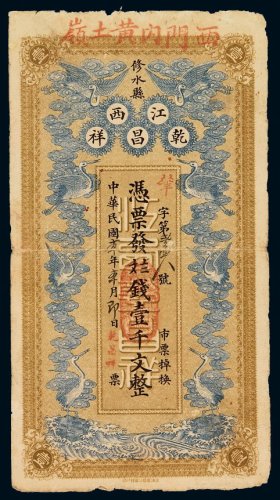 西門內黃土嶺
修水縣
江西
乾昌祥
字第 號
憑票發 錢壹千文整
市票掉換
中華民國 年 月 日 票